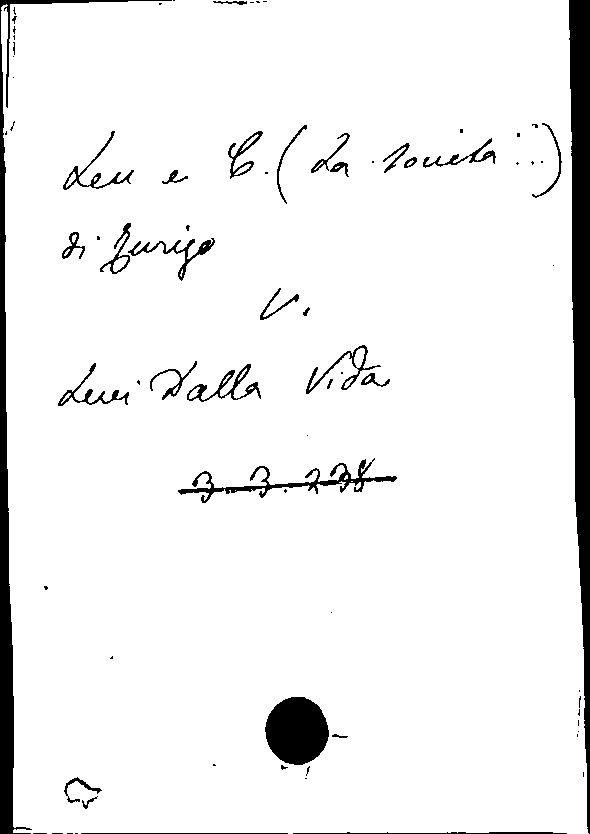 Leu e C. (La società...)
di Zurigo
V.
Levi Dalla Vida
3.3.238